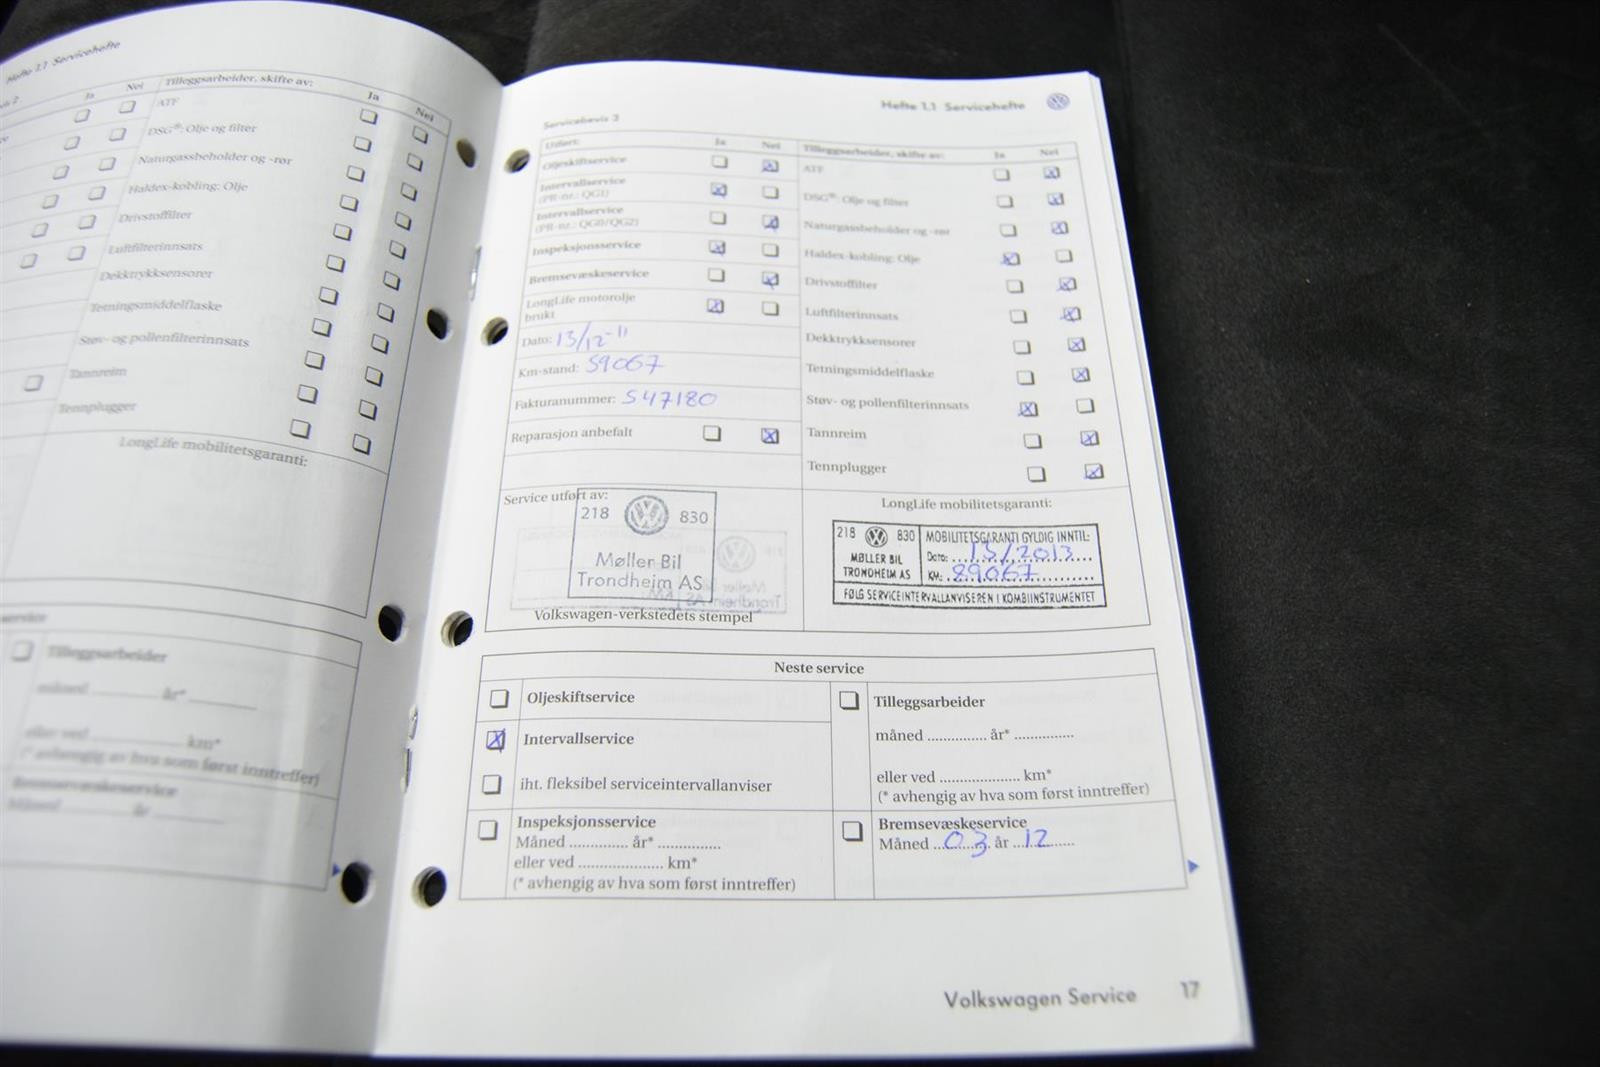 Hefte 1.1 Servicehefte
Ja Nei
Tilleggsarbeider, skifte av: Ja Nei
ATF
DSG®: Olje og filter
Naturgassbeholder og -rør
Haldex-kobling: Olje
Drivstoffilter
Luftfilterinnsats
Dekktrykksensorer
Tetningsmiddelflaske
Støv- og pollenfilterinnsats
Tannreim
Tennplugger
LongLife mobilitetsgaranti:
Tilleggsarbeider
måned år*
eller ved km*
(* avhengig av hva som først inntreffer)
Bremsevæskeservice
Måned år
Hefte 1.1 Servicehefte
Servicebevis 3
Utført: Ja Nei
Oljeskiftservice
Intervallservice
(PR-nr.: QG1)
Intervallservice
(PR-nr.: QG0/QG2)
Inspeksjonsservice
Bremsevæskeservice
LongLife motorolje
brukt
Dato: 13/12-11
Km-stand: 59067
Fakturanummer: 547180
Reparasjon anbefalt
Tilleggsarbeider, skifte av: Ja Nei
ATF
DSG®: Olje og filter
Naturgassbeholder og -rør
Haldex-kobling: Olje
Drivstoffilter
Luftfilterinnsats
Dekktrykksensorer
Tetningsmiddelflaske
Støv- og pollenfilterinnsats
Tannreim
Tennplugger
Service utført av:
218 830
Møller Bil
Trondheim AS
Volkswagen-verkstedets stempel
LongLife mobilitetsgaranti:
218 830 MOBILITETSGARANTI GYLDIG INNTIL:
MØLLER BIL DATO: 13/2013
TRONDHEIM AS KM: 89067
FØLG SERVICEINTERVALLANVISEREN I KOMBIINSTRUMENTET
Neste service
Oljeskiftservice
Intervallservice
iht. fleksibel serviceintervallanviser
Inspeksjonsservice
Måned .............. år* ...............
eller ved .................... km*
(* avhengig av hva som først inntreffer)
Tilleggsarbeider
måned .............. år* ..............
eller ved ................... km*
(* avhengig av hva som først inntreffer)
Bremsevæskeservice
Måned ...03... år ...12......
Volkswagen Service 17